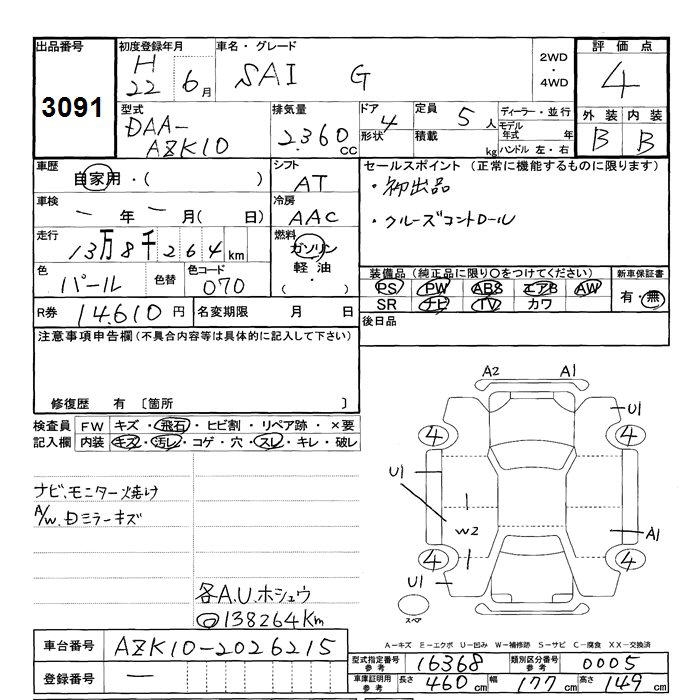 出品番号 初度登録年月 車名・グレード 2WD・4WD 評価点
3091 H22 6月 SAI G 4
型式 排気量 ドア形状 定員 ディーラー・並行 外装 内装
DAA-AZK10 2,360CC 4 5人 モデル年式 年 B B
積載 kg ハンドル 左・右
車歴 シフト セールスポイント (正常に機能するものに限ります)
自家用・( ) AT ・初出品
車検 冷房
ー年ー月( 日) AAC ・クルーズコントロール
走行 燃料
13万8千264km ガソリン
軽油
・( )
色 色替 色コード 装備品 (純正品に限り○をつけてください) 新車保証書
パール 070 PS PW ABS エアB AW 有・無
SR ナビ TV カワ
R券 14,610円 名変期限 月 日 後日品
注意事項申告欄(不具合内容等は具体的に記入して下さい)
修復歴 有 〔箇所 〕
検査員 FW キズ・飛石・ヒビ割・リペア跡・×要
記入欄 内装 キズ・汚レ・コゲ・穴・スレ・キレ・破レ
ナビ、モニター焼け
A/W、Dミラーキズ
各A.U.ホシュウ
@138264Km
A2 A1
U1
4 4
U1
W2
A1
4 4
U1
スペア
A-キズ E-エクボ U-凹み W-補修跡 S-サビ C-腐食 XX-交換済
車台番号 AZK10-2026215
登録番号 ー
型式指定番号参考 16368 類別区分番号参考 0005
車庫証明用参考 長さ 460cm 幅 177cm 高さ 149cm